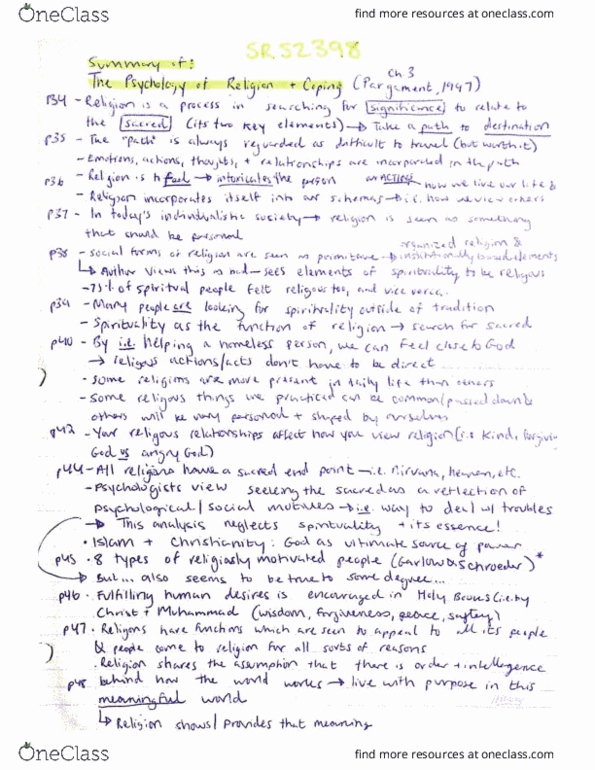 OneClass
find more resources at oneclass.com
SRS2398
Summary of:
The Psychology of Religion + Coping (Pargament, 1997) Ch 3
p34 - Religion is a process in searching for significance to relate to
the sacred (its two key elements) → Take a path to destination
p35 - The "path" is always regarded as difficult to travel (but worth it)
- Emotions, actions, thoughts, + relationships are incorporated in the path
p36 - Religion is to feel → intoxicates the person
- Religion incorporates itself into our schemas → i.e. how we view others
how we live our life &
p37 - In today's individualistic society → religion is seen as something
that should be personal
p38 - social forms of religion are seen as primitive → institutionally based elements
organized religion &
↳ Author views this as bad - sees elements of spirituality to be religious
- 73% of spiritual people felt religious too, and vice versa.
p39 - Many people are looking for spirituality outside of tradition
- Spirituality as the function of religion → search for sacred
p40 - By i.e. helping a homeless person, we can feel close to God
→ religous actions/acts don't have to be direct
- some religions are more present in daily life than others
- Some religous things we practiced can be common/passed down &
others will be very personal + shaped by ourselves
p42 - Your religous relationships affect how you view religion (i.e. kind, forgiving
God vs angry God)
p44 - All religions have a sacred end point - i.e. nirvana, heaven, etc.
- Psychologists view seeking the sacred as a reflection of
psychological/social motives → i.e. way to deal w/ troubles
→ This analysis neglects spirituality + its essence!
• Islam + Christianity: God as ultimate source of power
p45 • 8 types of religiously motivated people (Garlow & Schroeder) *
→ But... also seems to be true to some degree...
p46 • Fulfilling human desires is encouraged in Holy Books (i.e. by
Christ + Muhammad (wisdom, forgiveness, peace, saftey)
p47 • Religions have functions which are seen to appeal to all its people
& people come to religion for all sorts of reasons
• Religion shares the assumption that there is order + intellegence
p48 behind how the world works → live with purpose in this
meaningful world
↳ Religion shows/provides that meaning
OneClass
find more resources at oneclass.com